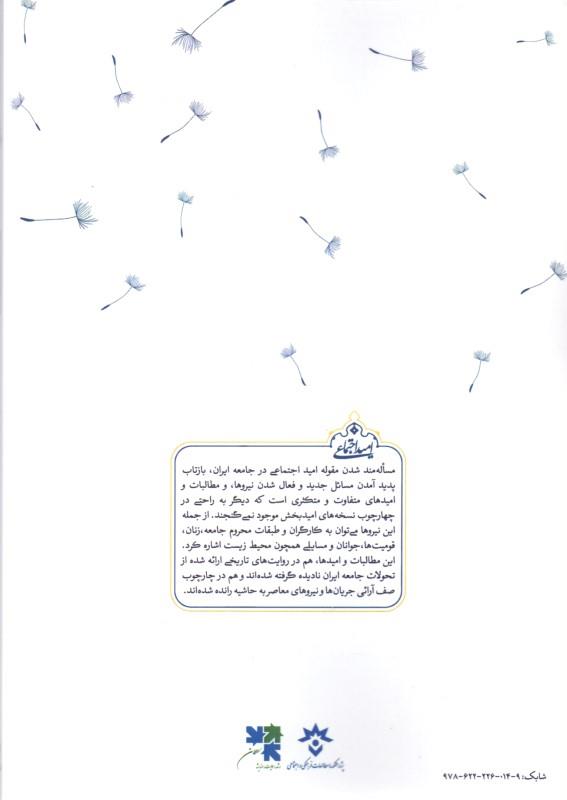 امید اجتماعی
مسأله‌مند شدن مقوله امید اجتماعی در جامعه ایران، بازتاب
پدید آمدن مسائل جدید و فعال شدن نیروها، و مطالبات و
امیدهای متفاوت و متکثری است که دیگر به راحتی در
چهارچوب نسخه‌های امیدبخش موجود نمی‌گنجند. از جمله
این نیروها می‌توان به کارگران و طبقات محروم جامعه،زنان،
قومیت‌ها،جوانان و مسایلی همچون محیط زیست اشاره کرد.
این مطالبات و امیدها، هم در روایت‌های تاریخی ارائه شده از
تحولات جامعه ایران نادیده گرفته شده‌اند و هم در چارچوب
صف آرائی جریان‌ها و نیروهای معاصر به حاشیه رانده شده‌اند.
پژوهشگاه مطالعات فرهنگی و اجتماعی
شابک: ۹-۰۱۴-۲۲۶-۶۲۲-۹۷۸